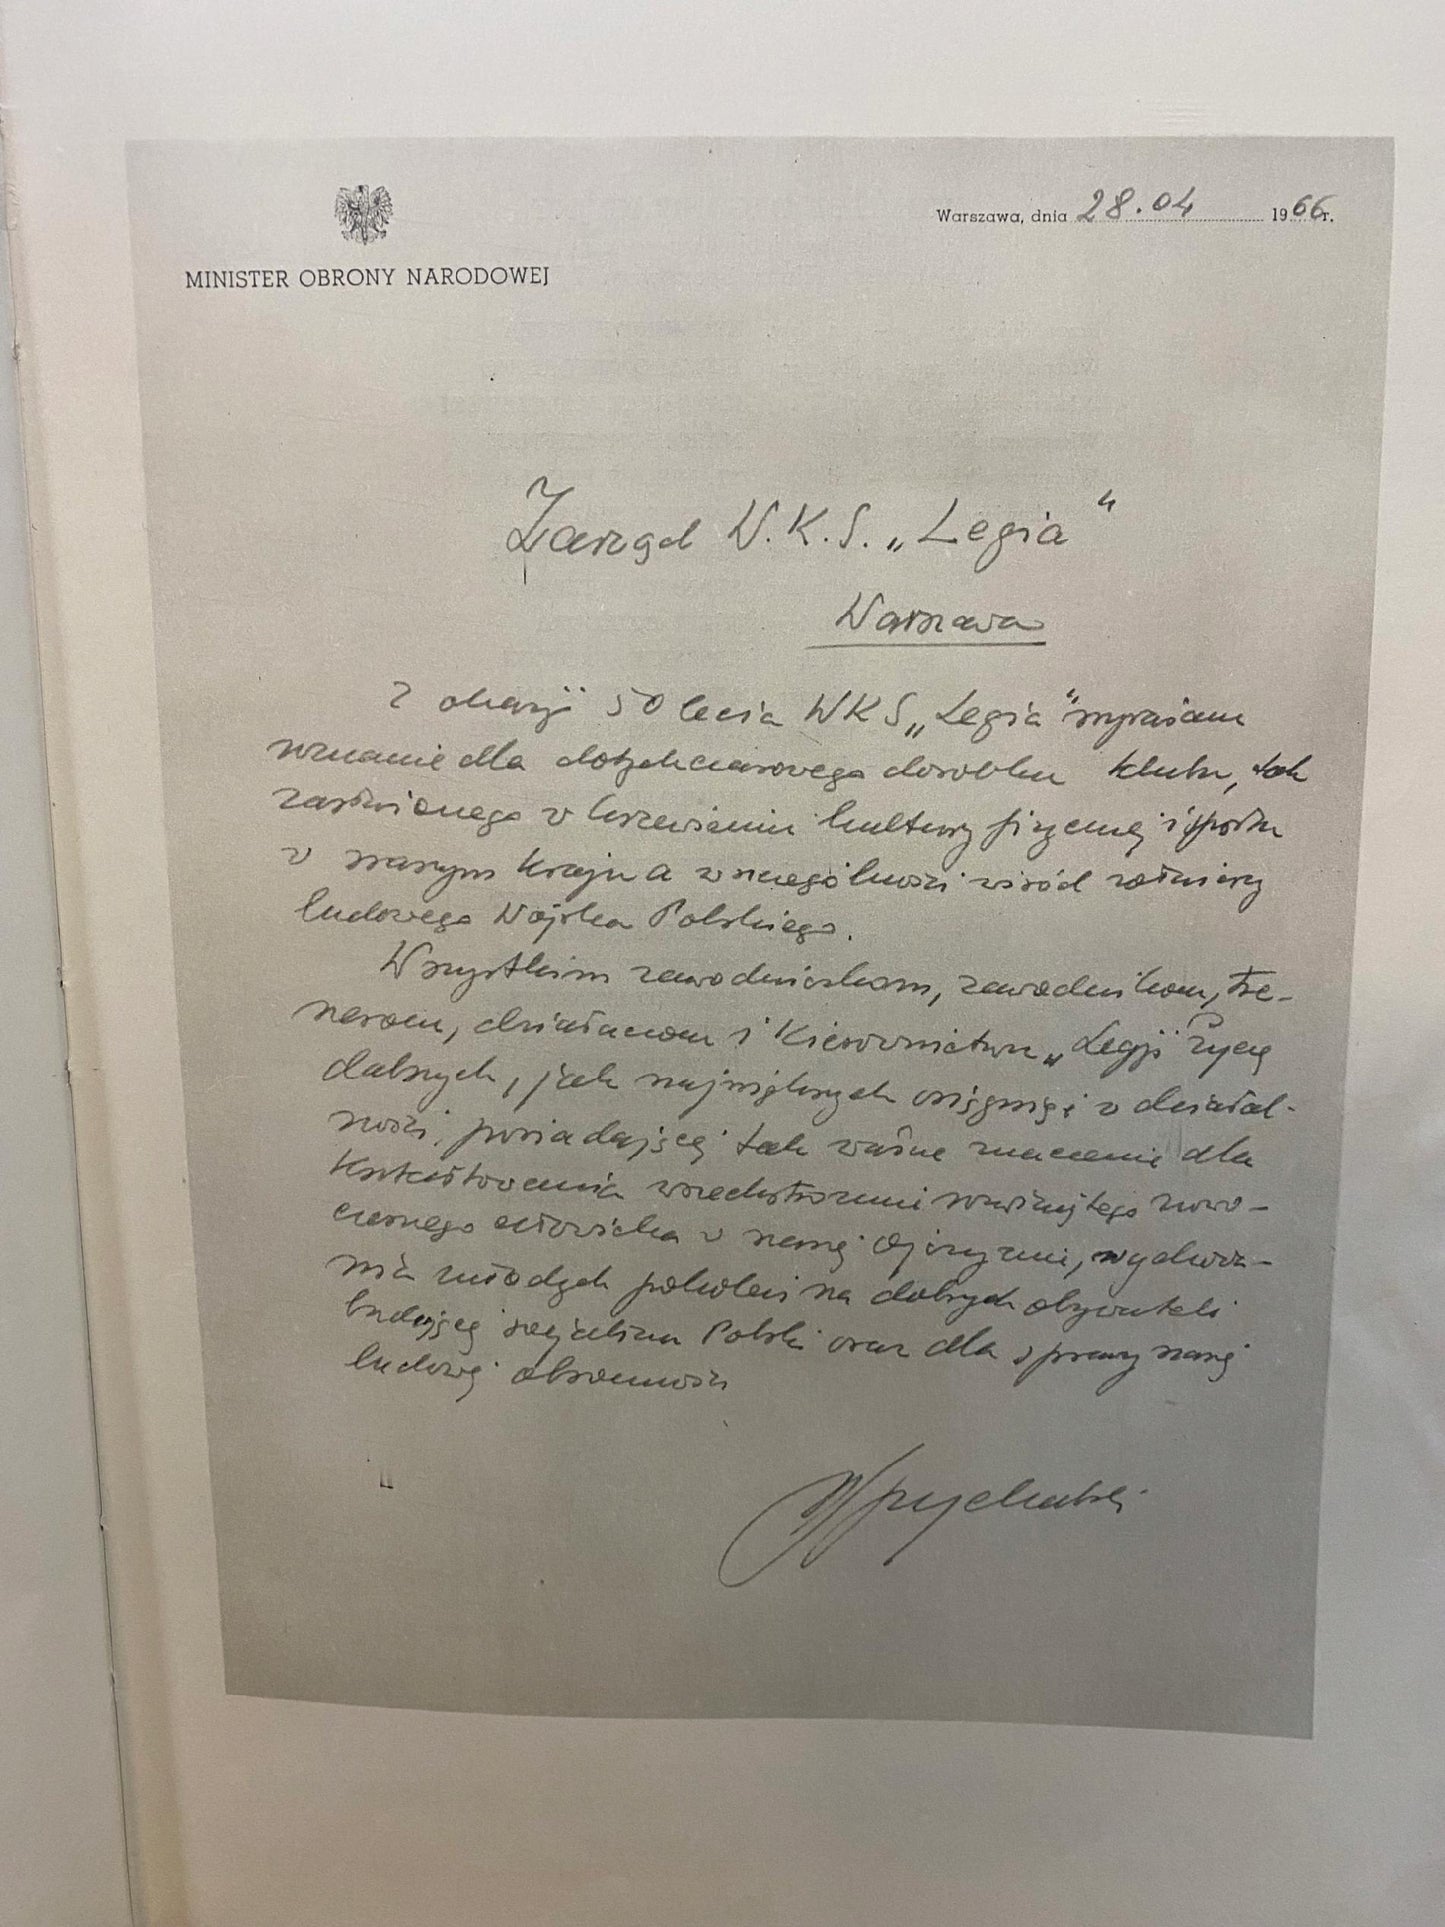 Warszawa, dnia 28.04 1966r.
MINISTER OBRONY NARODOWEJ
Zarząd W.K.S. „Legia"
Warszawa
Z okazji 50 lecia WKS „Legia" wyrażam
uznanie dla dotychczasowego dorobku klubu, tak
zasłużonego w krzewieniu kultury fizycznej i sportu
w naszym kraju a w szczególności wśród żołnierzy
ludowego Wojska Polskiego.
Wszystkim zawodniczkom, zawodnikom, tre-
nerom, działaczom i kierownictwu „Legji" życzę
dalszych, jak największych osiągnięć w działal-
ności, posiadającej tak ważne znaczenie dla
kształtowania wszechstronnie rozwiniętego nowo-
czesnego człowieka w naszej ojczyźnie, wychowa-
nia młodych pokoleń na dobrych obywateli
budującej socjalizm Polski oraz dla sprawy naszej
ludowej obronności
Spychalski